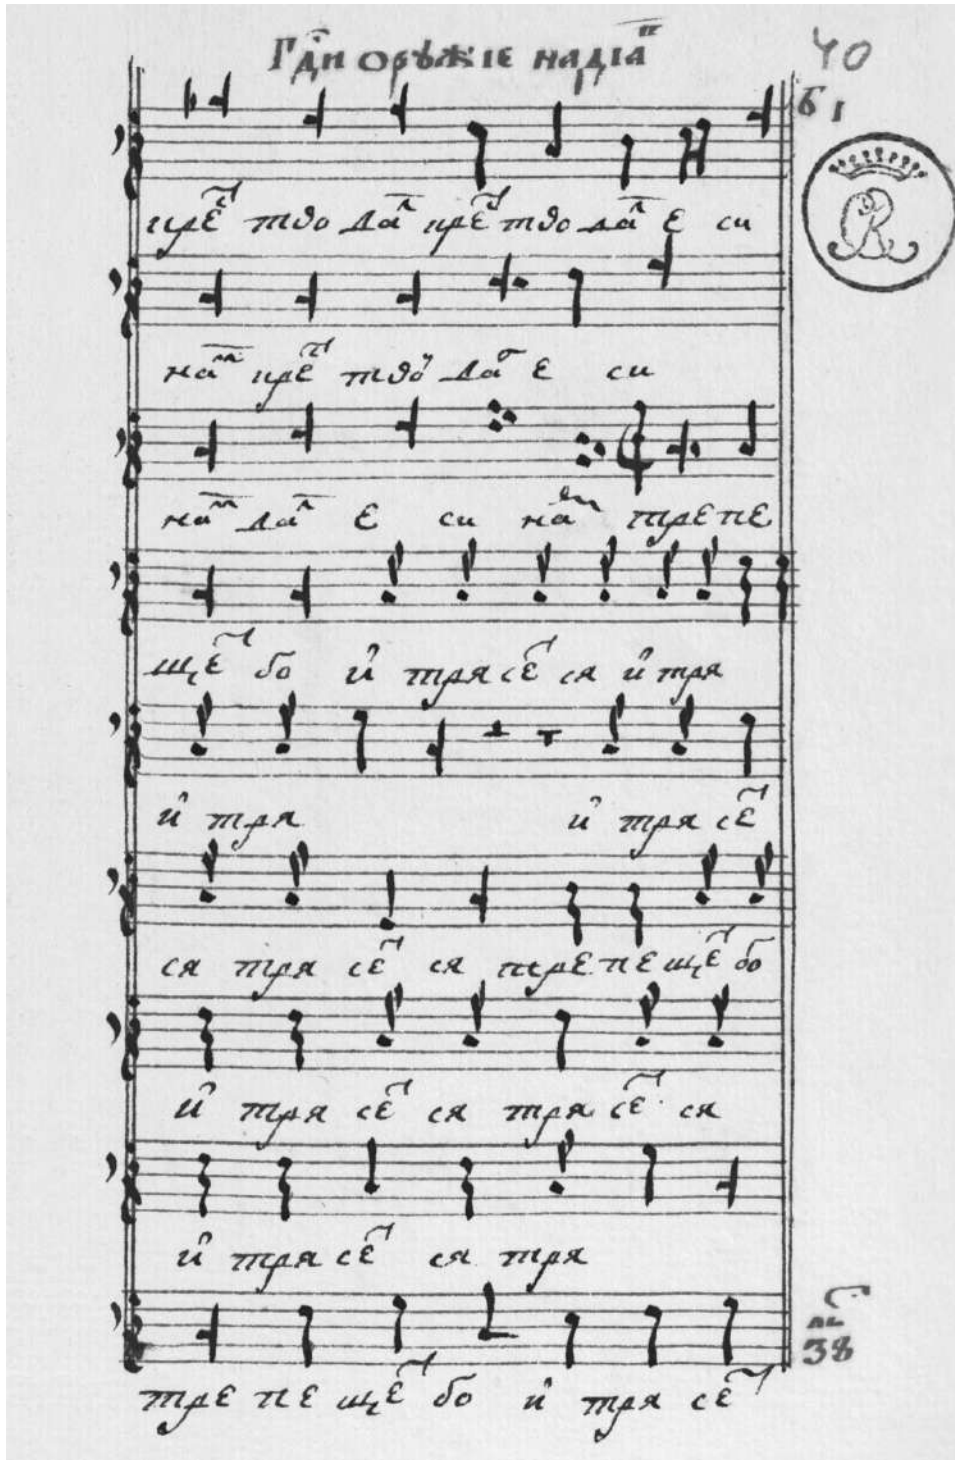 Гди орѹжіе на діа
40
б 1
крⷭ҇ тво даⷧ҇ крⷭ҇ тво даⷧ҇ е си
наⷨ҇ крⷭ҇ тво даⷧ҇ е си
наⷨ҇ даⷧ҇ е си наⷨ҇ трепе
щеⷮ бо и трясеⷮ ся и тря
и тря и тря сеⷮ
ся тря сеⷮ ся трепе щеⷮ бо
и тря сеⷮ ся тря сеⷮ ся
и тря сеⷮ ся тря
38
тре пе щеⷮ бо и тря сеⷮ